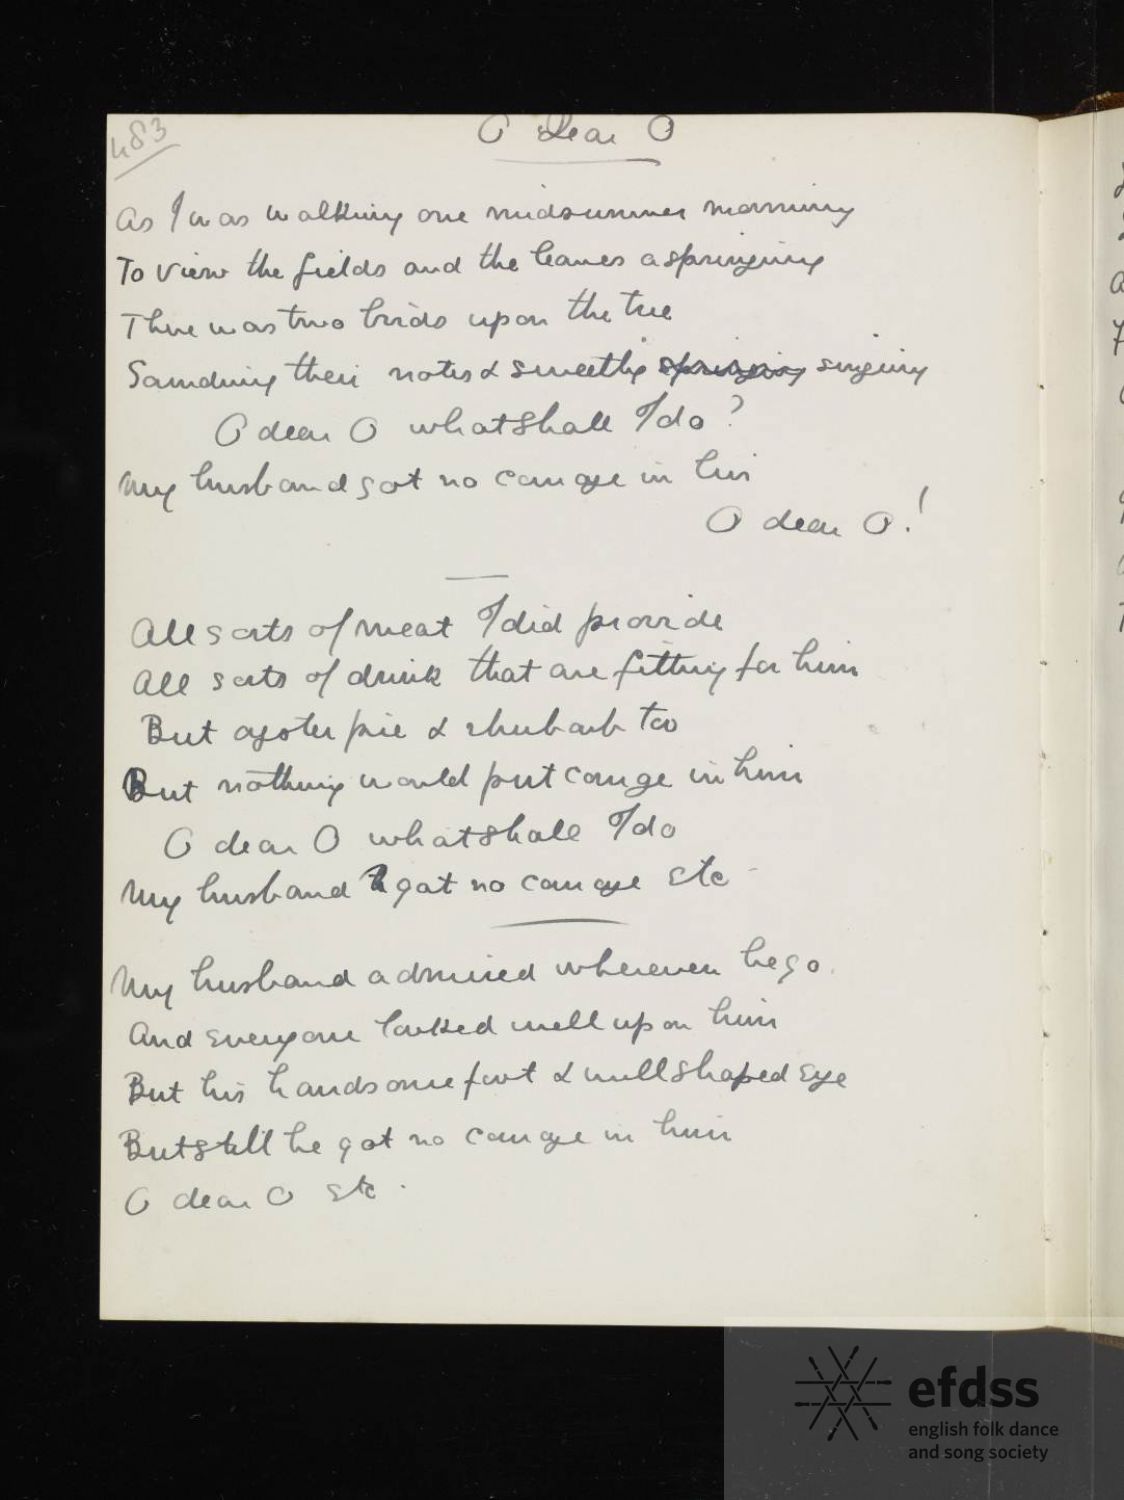 483
O dear O
As I was walking one midsummer morning
To view the fields and the leaves a springing
There was two birds upon the tree
Sounding their notes & sweetly springing singing
O dear O what shall I do?
My husband got no courage in him
O dear O!
All sorts of meat I did provide
All sorts of drink that are fitting for him
But oyster pie & rhubarb too
But nothing would put courage in him
O dear O what shall I do
My husband got no courage etc
My husband admired wherever he go.
And everyone looked well upon him
But his handsome foot & well shaped eye
But still he got no courage in him
O dear O etc.
efdss
english folk dance
and song society